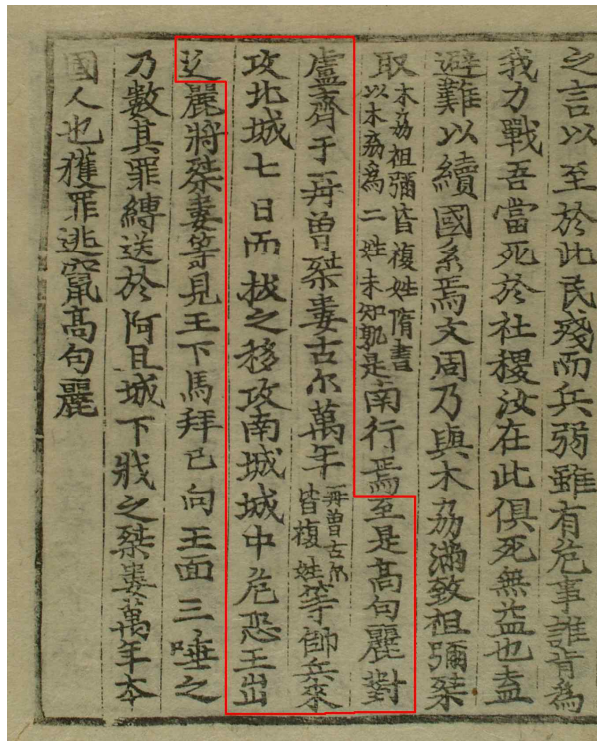 之言以至於此民殘而兵弱雖有危事誰肯爲
我力戰吾當死於社稷汝在此俱死無益也盍
避難以續國系焉文周乃與木劦滿致祖彌桀
取木劦祖彌皆複姓隋書以木劦爲二姓未知孰是南行焉至是高句麗對
盧齊于再曾桀婁古尒萬年再曾古尒皆複姓等帥兵來
攻北城七日而拔之移攻南城城中危恐王出
迯麗將桀婁等見王下馬拜已向王面三唾之
乃數其罪縛送於阿且城下戕之桀婁萬年本
國人也獲罪逃竄高句麗